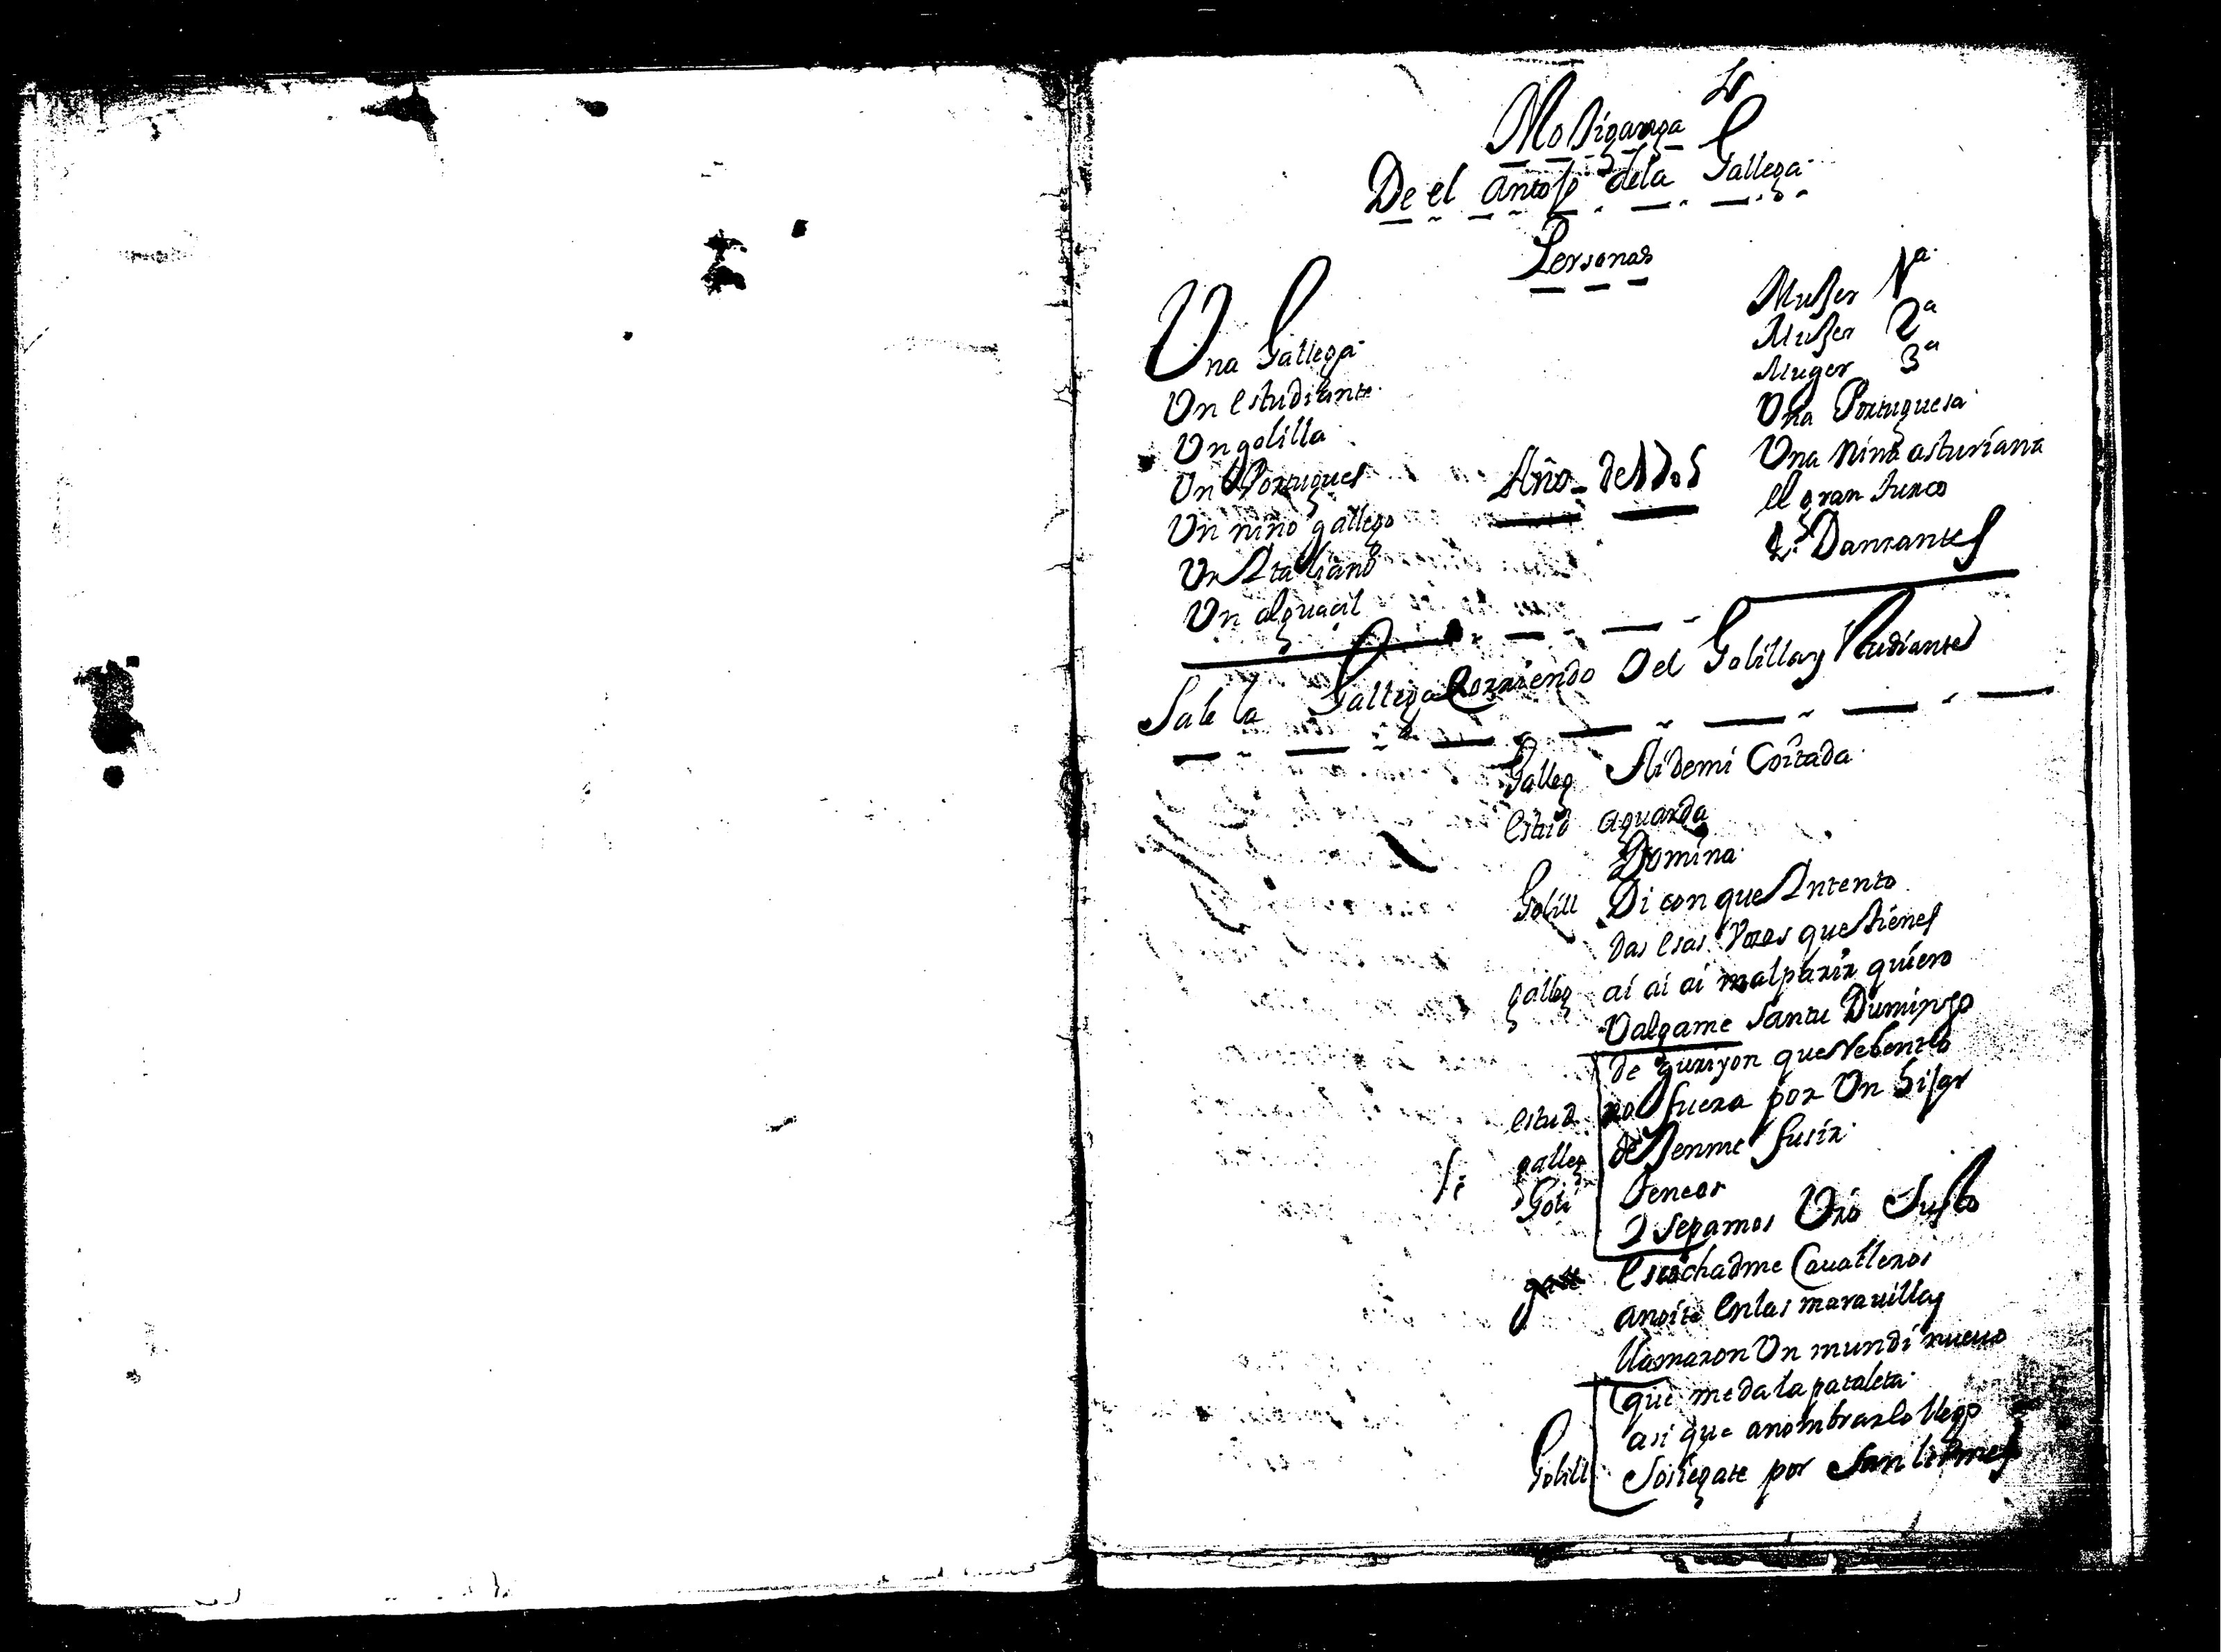 Mojiganga
De el antojo dela Gallega
Personas
Una Gallega
Un estudiante
Un golilla
Un Portugues
Un niño gallego
Un Italiano
Un alguacil
Año de 1705
Mujer 1ª
Mujer 2ª
Muger 3ª
Una Portuguesa
Una Nina asturiana
el gran turco
4 Danzantes
Sale la Gallega Corriendo Del Golilla y studiante
Galleg Ai demi Coitada
estud aguarda
Domina
Golill Di con que Intento
das esas vozes que tienes
galleg ai ai ai malparir quiero
Valgame Santu Dumingo
de que Rebento
estud no fuera por Un hijar
galleg dejenme fusir
Goli teneos
I sepamos Uro Susto
gall escuchadme Caualleros
anoite enlas marauillas
llamaron Un mundi nueuo
que me da la pataleta
asi que anombrarlo llego
Golill Sosiegate por San